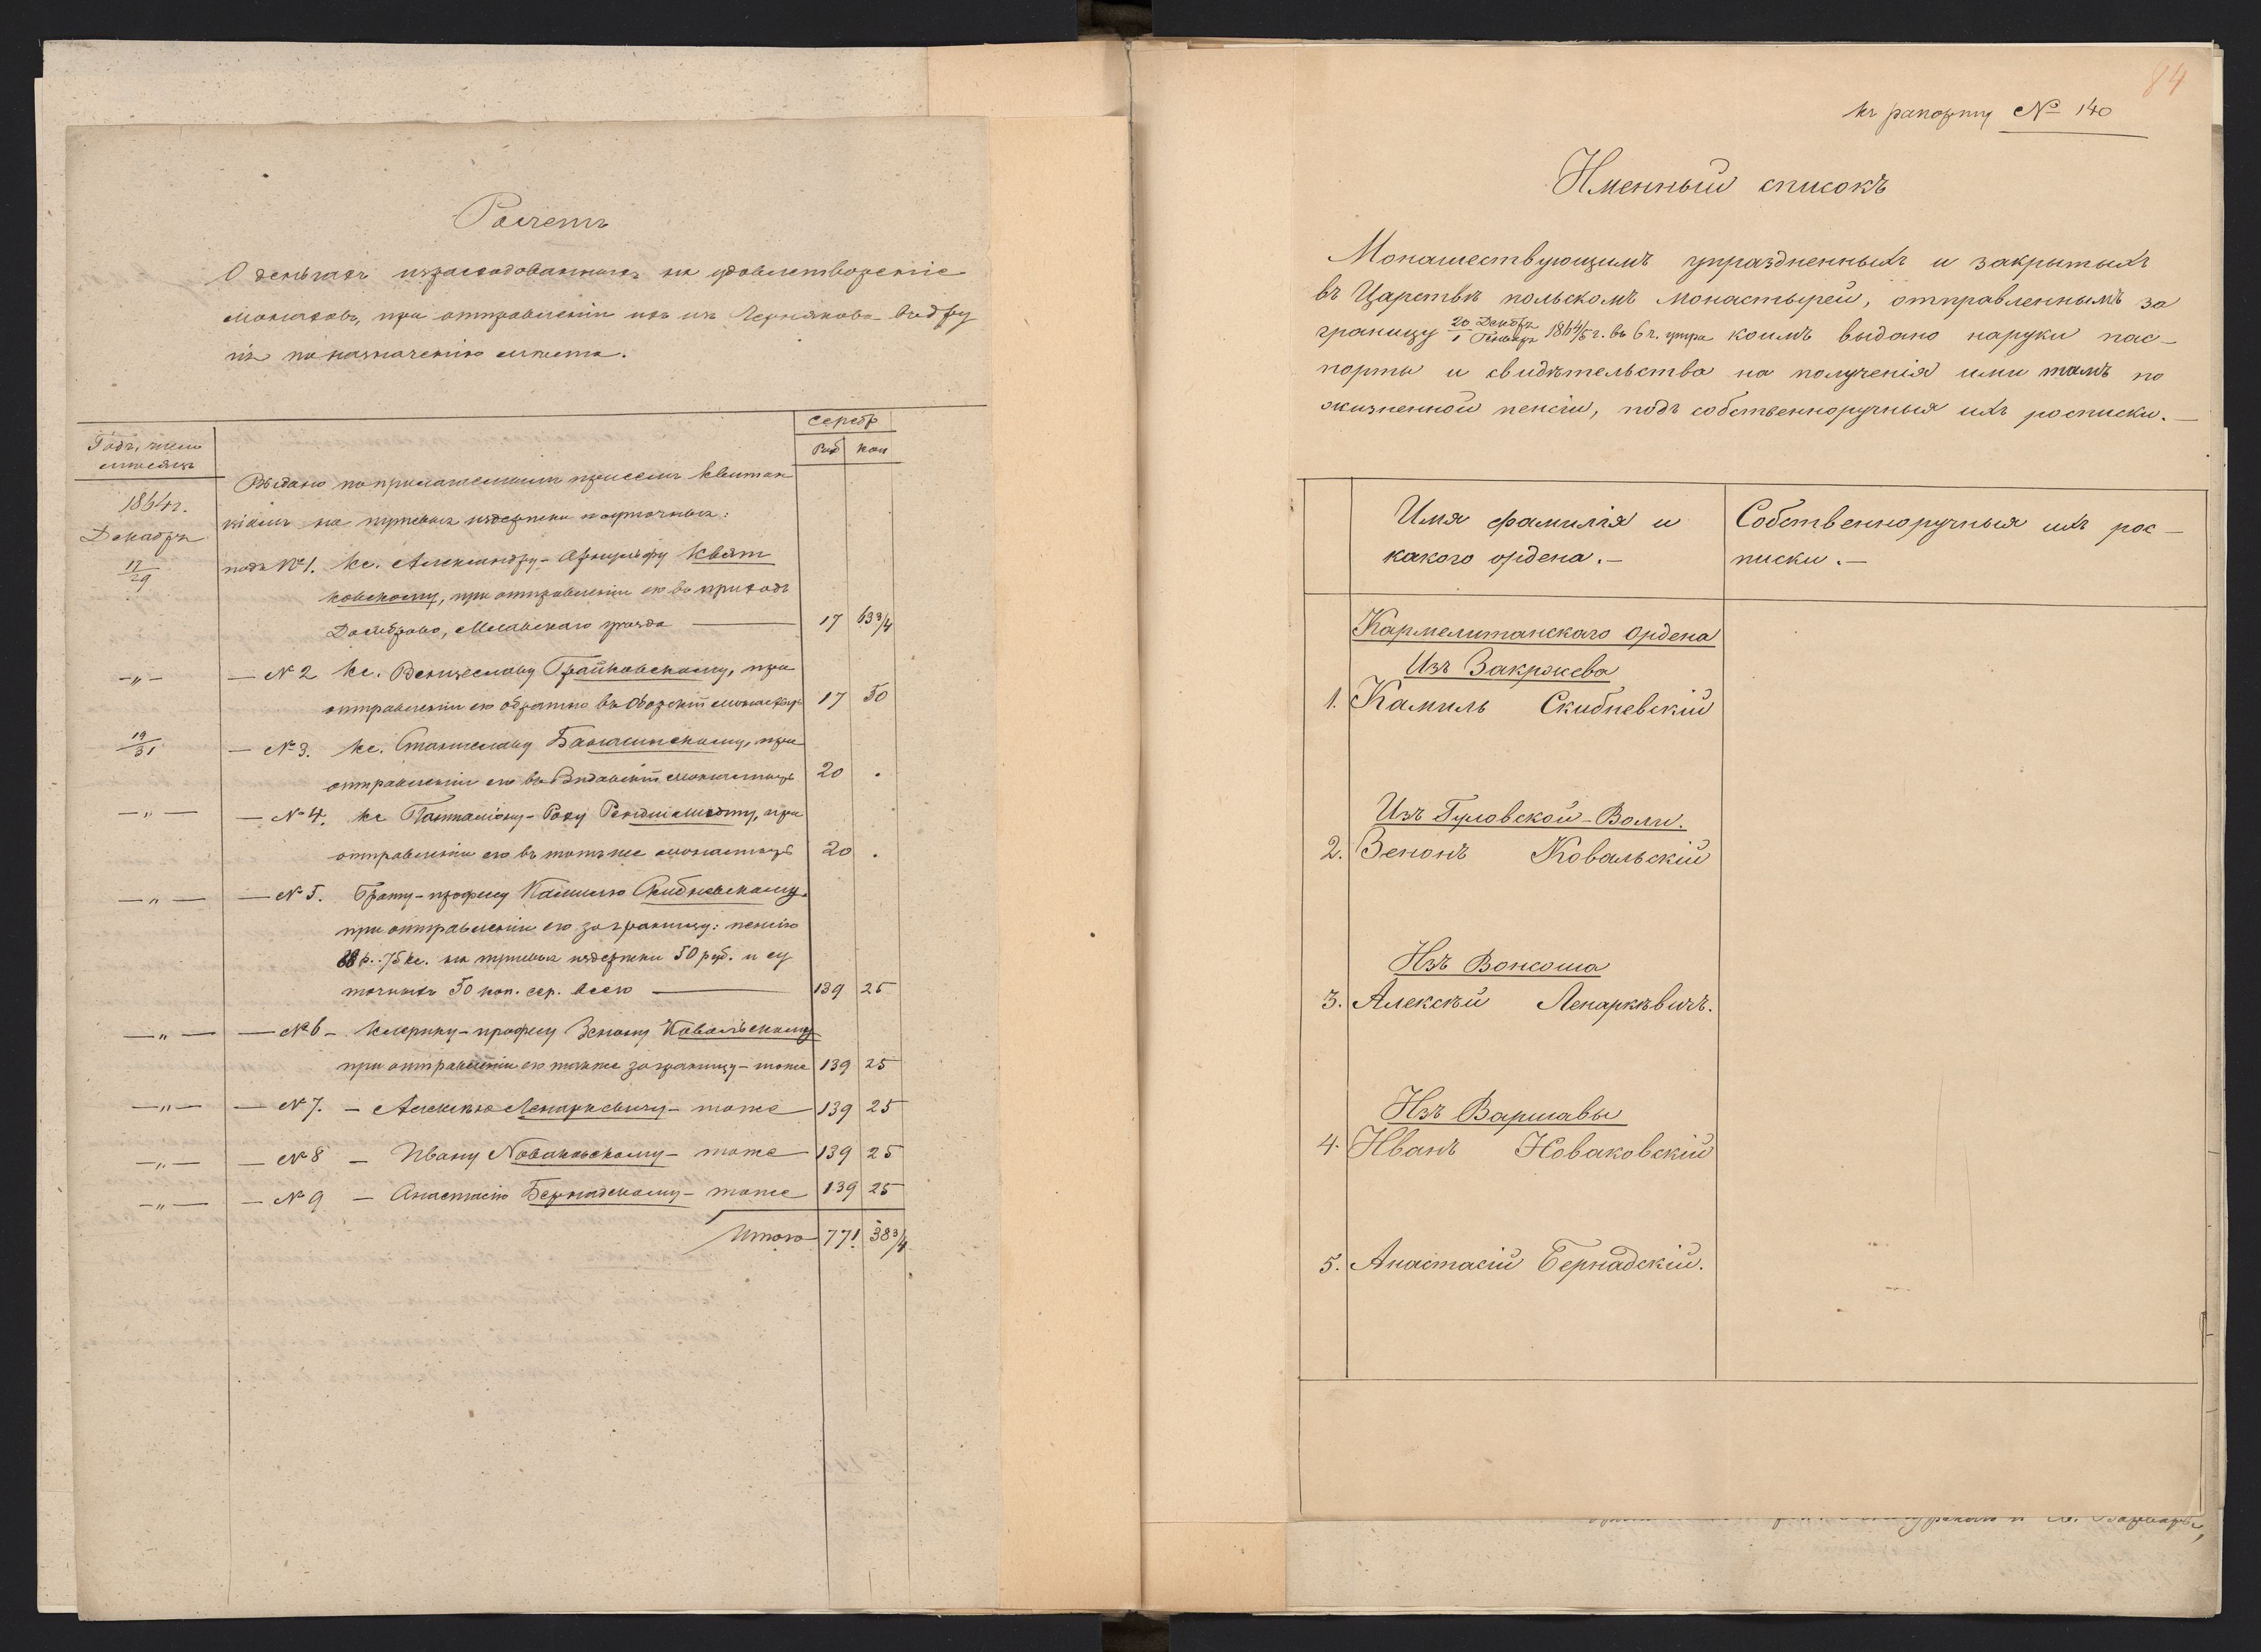 Расчетъ
О деньгахъ израсходованныхъ на удовлетвореніе
монаховъ, при отправленіи ихъ изъ Чернякова
по назначенію
Годъ, число
мѣсяцъ
серебр
Руб коп
1864 г.
Декабрь
Выдано по прилагаемымъ присемъ квитан
ціямъ на путевыя издержки и суточныя:
17/29
подъ № 1. Кс. Александру-Арнульфу Квят
ковскому, при отправленіи его въ приходъ
Домброво, Млавскаго уѣзда — 17 63 3/4
—„— — № 2 Кс. Венцеславу Грайковскому, при
отправленіи его обратно въ монастырь 17 50
19/31 — № 3. Кс. Станиславу при
отправленіи его въ монастырь 20 .
—„— — № 4. Кс Панталіону-Роху при
отправленіи его въ тотъ же монастырь 20 .
—„— — № 5. Брату-професу Камилю Скибневскому
при отправленіи его заграницу: пенсію
88 р. 75 к. на путевыя издержки 50 руб. и су
точныхъ 50 коп. сер. всего — 139 25
—„— — № 6 — Клерику-професу Зенону Ковальскому
при отправленіи его также заграницу — тоже 139 25
—„— — № 7. — Алексѣю Ленаркевичу — тоже 139 25
—„— — № 8 — Ивану Новаковскому — тоже 139 25
—„— — № 9 — Анастасію Бернадскому — тоже 139 25
Итого 771 38 3/4
84
къ рапорту № 140
Именный списокъ
Монашествующимъ упраздненныхъ и закрытыхъ
въ Царствѣ польскомъ монастырей, отправленнымъ за
границу 20 Декабря / 1 Генваря 1864/5 г. въ 6 ч. утра коимъ выдано наруки пас-
порты и свидѣтельства на полученія ими тамъ по
жизненной пенсіи, подъ собственноручныя ихъ росписки. —
Имя фамилія и
какого ордена. —
Собственноручныя ихъ рос-
писки. —
Кармелитанскаго Ордена
Изъ Закржева
1. Камиль Скибневскій
Изъ Гуловской-Воли.
2. Зенонъ Ковальскій
Изъ Вонсоша
3. Алексѣй Ленаркѣвичъ.
Изъ Варшавы
4. Иванъ Новаковскій
5. Анастасій Бернадскій.